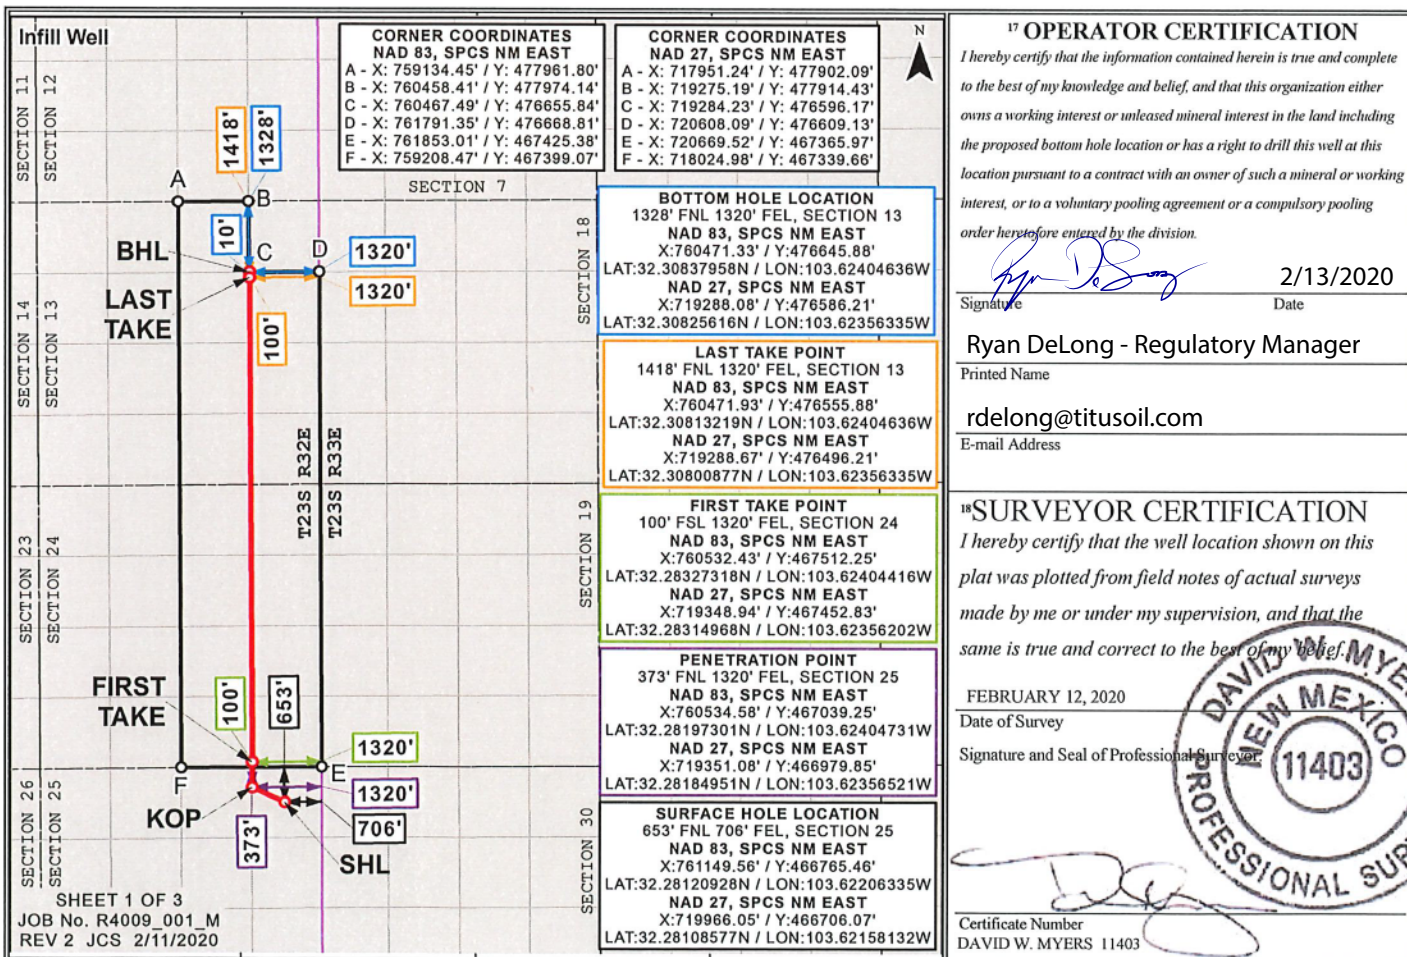 Infill Well
SECTION 11
SECTION 12
CORNER COORDINATES
NAD 83, SPCS NM EAST
A - X: 759134.45' / Y: 477961.80'
B - X: 760458.41' / Y: 477974.14'
C - X: 760467.49' / Y: 476655.84'
D - X: 761791.35' / Y: 476668.81'
E - X: 761853.01' / Y: 467425.38'
F - X: 759208.47' / Y: 467399.07'
CORNER COORDINATES
NAD 27, SPCS NM EAST
A - X: 717951.24' / Y: 477902.09'
B - X: 719275.19' / Y: 477914.43'
C - X: 719284.23' / Y: 476596.17'
D - X: 720608.09' / Y: 476609.13'
E - X: 720669.52' / Y: 467365.97'
F - X: 718024.98' / Y: 467339.66'
N
SECTION 7
1418'
1328'
A
B
10'
C
D
BHL
LAST
TAKE
1320'
1320'
100'
SECTION 18
SECTION 14
SECTION 13
T23S R32E
T23S R33E
SECTION 19
SECTION 23
SECTION 24
FIRST
TAKE
100'
653'
1320'
F
E
1320'
KOP
373'
706'
SHL
SECTION 26
SECTION 25
SECTION 30
SHEET 1 OF 3
JOB No. R4009_001_M
REV 2 JCS 2/11/2020
BOTTOM HOLE LOCATION
1328' FNL 1320' FEL, SECTION 13
NAD 83, SPCS NM EAST
X:760471.33' / Y:476645.88'
LAT:32.30837958N / LON:103.62404636W
NAD 27, SPCS NM EAST
X:719288.08' / Y:476586.21'
LAT:32.30825616N / LON:103.62356335W
LAST TAKE POINT
1418' FNL 1320' FEL, SECTION 13
NAD 83, SPCS NM EAST
X:760471.93' / Y:476555.88'
LAT:32.30813219N / LON:103.62404636W
NAD 27, SPCS NM EAST
X:719288.67' / Y:476496.21'
LAT:32.30800877N / LON:103.62356335W
FIRST TAKE POINT
100' FSL 1320' FEL, SECTION 24
NAD 83, SPCS NM EAST
X:760532.43' / Y:467512.25'
LAT:32.28327318N / LON:103.62404416W
NAD 27, SPCS NM EAST
X:719348.94' / Y:467452.83'
LAT:32.28314968N / LON:103.62356202W
PENETRATION POINT
373' FNL 1320' FEL, SECTION 25
NAD 83, SPCS NM EAST
X:760534.58' / Y:467039.25'
LAT:32.28197301N / LON:103.62404731W
NAD 27, SPCS NM EAST
X:719351.08' / Y:466979.85'
LAT:32.28184951N / LON:103.62356521W
SURFACE HOLE LOCATION
653' FNL 706' FEL, SECTION 25
NAD 83, SPCS NM EAST
X:761149.56' / Y:466765.46'
LAT:32.28120928N / LON:103.62206335W
NAD 27, SPCS NM EAST
X:719966.05' / Y:466706.07'
LAT:32.28108577N / LON:103.62158132W
17 OPERATOR CERTIFICATION
I hereby certify that the information contained herein is true and complete
to the best of my knowledge and belief, and that this organization either
owns a working interest or unleased mineral interest in the land including
the proposed bottom hole location or has a right to drill this well at this
location pursuant to a contract with an owner of such a mineral or working
interest, or to a voluntary pooling agreement or a compulsory pooling
order heretofore entered by the division.
2/13/2020
Signature Date
Ryan DeLong - Regulatory Manager
Printed Name
rdelong@titusoil.com
E-mail Address
18SURVEYOR CERTIFICATION
I hereby certify that the well location shown on this
plat was plotted from field notes of actual surveys
made by me or under my supervision, and that the
same is true and correct to the best of my belief.
FEBRUARY 12, 2020
Date of Survey
Signature and Seal of Professional Surveyor:
DAVID W. MYE
NEW MEXICO
11403
PROFESSIONAL SUR
Certificate Number
DAVID W. MYERS 11403